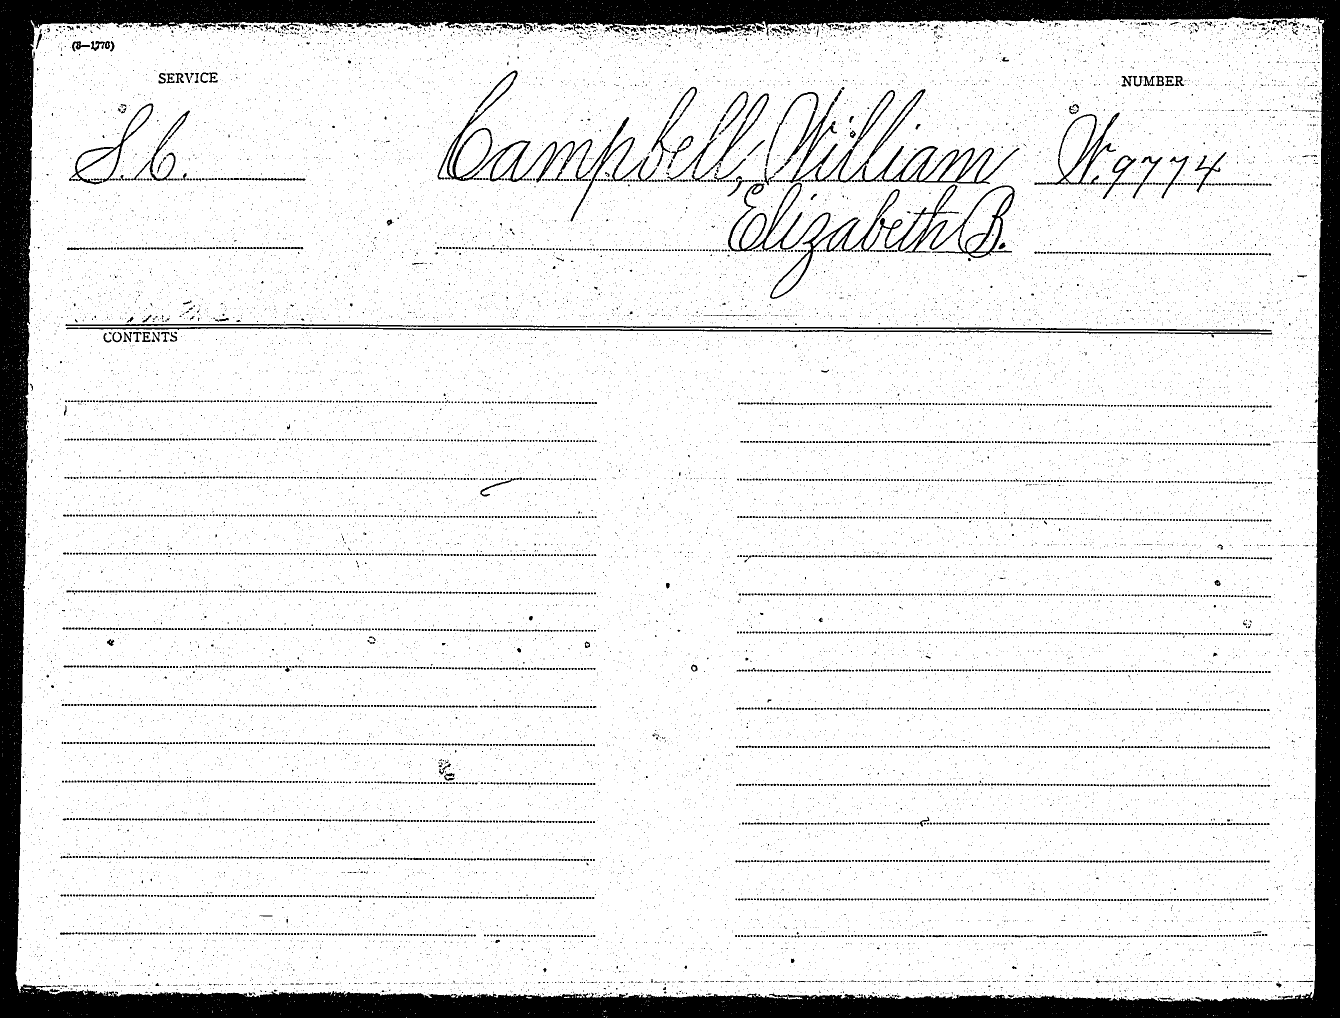 (3—1776)
SERVICE
NUMBER
S.C.
Campbell, William
W.9774
Elizabeth B.
CONTENTS